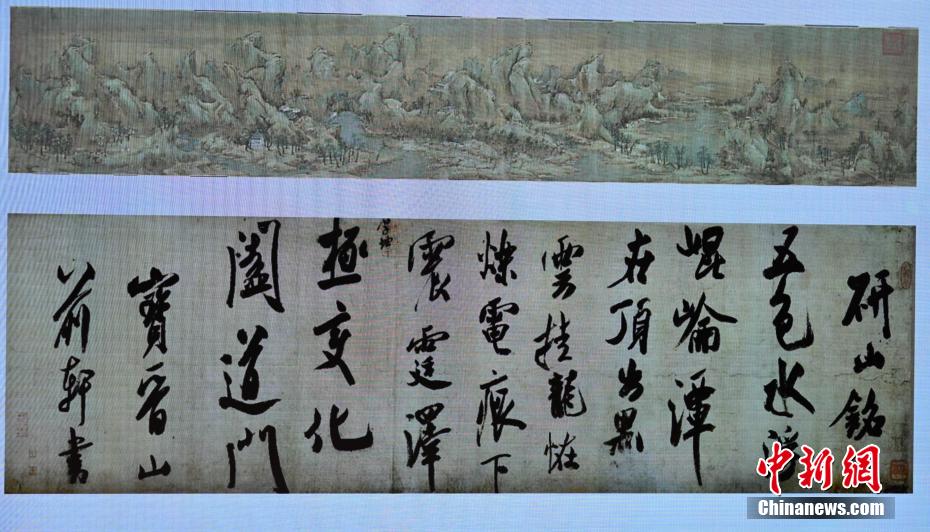 研山銘
五色水浮
崐崘潭
在頂出黑
雲挂龍怪
爍電痕下
震霆澤
厚坤
極變化
闔道門
寶晉山
前軒書
中新網
Chinanews.com